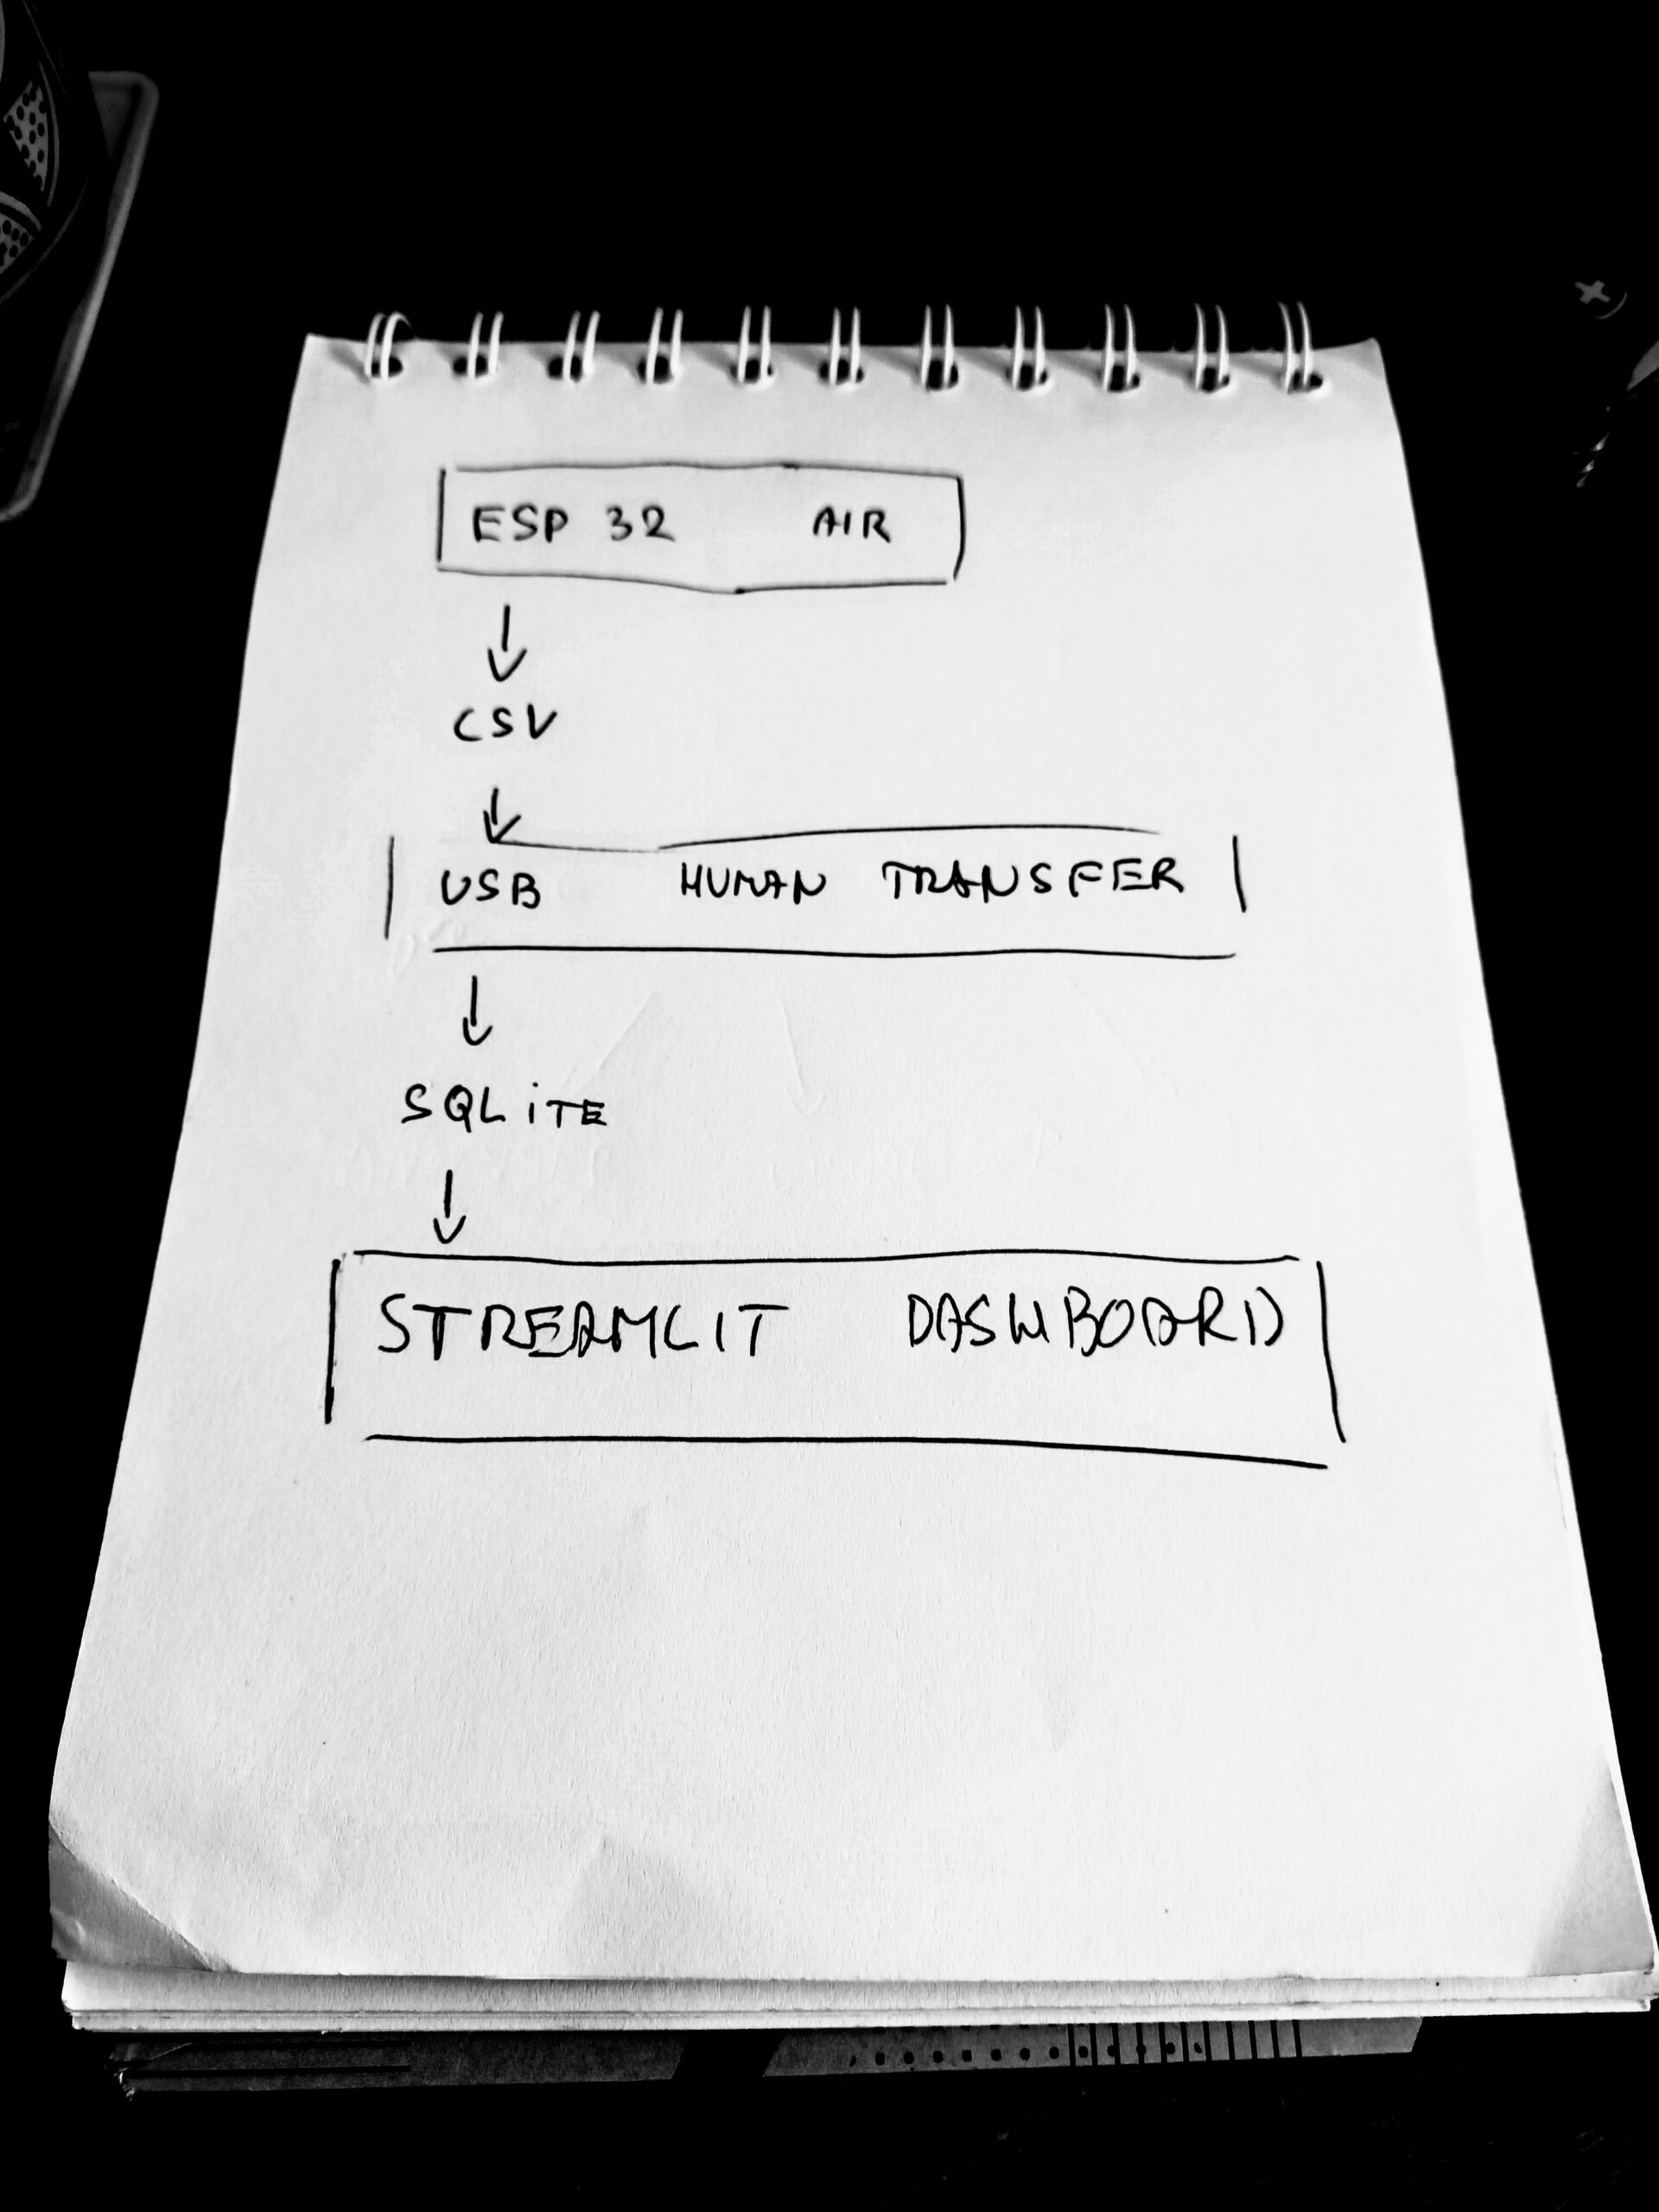 ESP 32 AIR
CSV
USB HUMAN TRANSFER
SQLiTE
STREAMLIT DASHBOARD